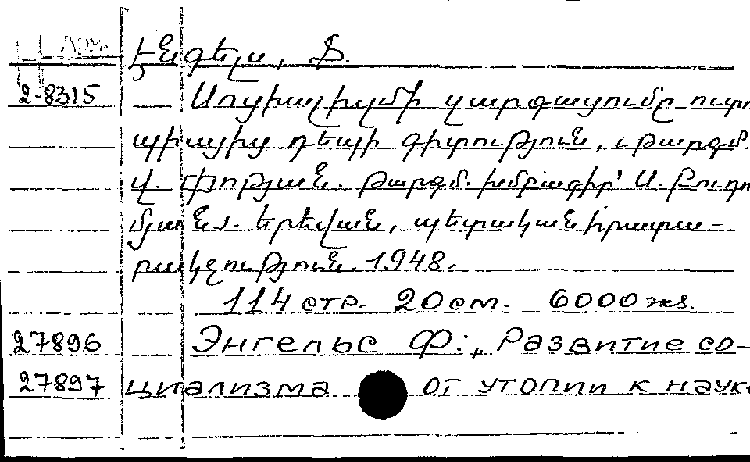 Էնգելս, Ֆ.
2-8315 Սոցիալիզմի զարգացումը ուտո
պիայից դեպի գիտություն, թարգմ.
Վ. Թոթյան. թարգմ. խմբագիր՝ Ս.
մյան. Երեվան, պետական հրատա-
րակչություն. 1948.
114 стр. 20 см. 6000 экз.
27896 Энгельс Ф., Развитие со-
27897 циализма от утопии к наук